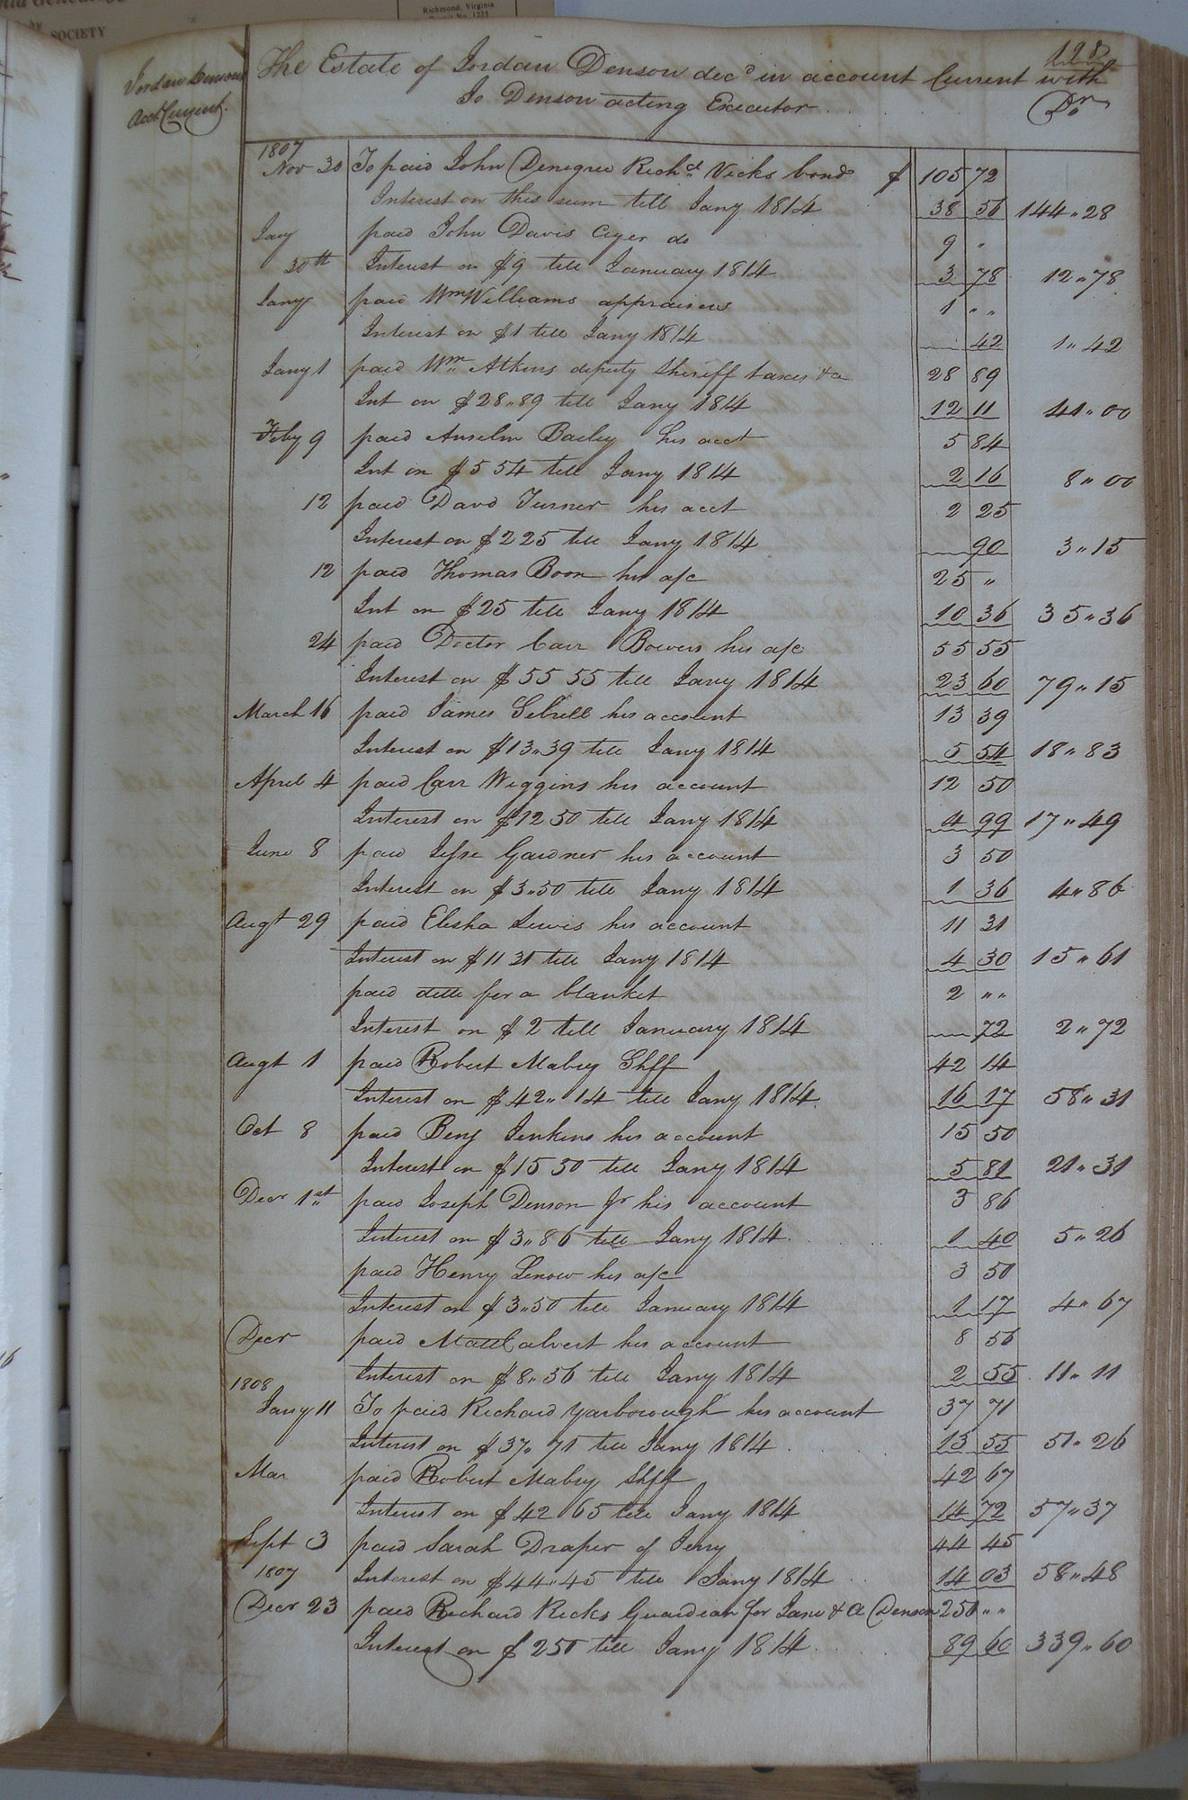 Richmond, Virginia
SOCIETY
128
Jordan Densons
Acct Current.
The Estate of Jordan Denson decd in account Current with
Jo. Denson acting Executor. Dr
1807
Nov 30 To paid John Denegree Richd Vicks bond $ 105 72
Interest on this sum till Jany 1814 38 56 144 " 28
Jany paid John Davis Cryer do 9 "
30th Interest on $9 till January 1814 3 78 12 " 78
Jany paid Wm Williams appraiser 1 " "
Interest on $1 till Jany 1814 42 1 " 42
Jany 1 paid Wm Atkins deputy Sheriff taxes &a 28 89
Int on $28 " 89 till Jany 1814 12 11 41 " 00
Feby 9 paid Anselm Bailey his acct 5 84
Int on $5 54 till Jany 1814 2 16 8 " 00
12 paid Davd Turner his acct 2 25
Interest on $2 25 till Jany 1814 90 3 " 15
12 paid Thomas Boon his a/c 25 "
Int on $25 till Jany 1814 10 36 35 " 36
24 paid Doctor Carr Bowers his a/c 55 55
Interest on $55 55 till Jany 1814 23 60 79 " 15
March 16 paid James Sebrell his account 13 39
Interest on $13 " 39 till Jany 1814 5 54 18 " 83
April 4 paid Carr Wiggins his account 12 50
Interest on $12 50 till Jany 1814 4 99 17 " 49
June 8 paid Jesse Gardner his account 3 50
Interest on $3 " 50 till Jany 1814 1 36 4 " 86
Augt 29 paid Elisha Lewis his account 11 31
Interest on $11 31 till Jany 1814 4 30 15 " 61
paid ditto for a blanket 2 " "
Interest on $2 till January 1814 72 2 " 72
Augt 1 paid Robert Mabry Shff 42 14
Interest on $42 " 14 till Jany 1814 16 17 58 " 31
Oct 8 paid Benj Jenkins his account 15 50
Interest on $15 50 till Jany 1814 5 81 21 " 31
Decr 1st paid Joseph Denson Jr his account 3 86
Interest on $3 " 86 till Jany 1814 1 40 5 " 26
paid Henry Lenow his a/c 3 50
Interest on $3 " 50 till January 1814 1 17 4 " 67
Decr paid Matt Calvert his account 8 56
Interest on $8 " 56 till Jany 1814 2 55 11 " 11
1808
Jany 11 To paid Richard Yarborough his account 37 71
Interest on $37 " 71 till Jany 1814 13 55 51 " 26
Mar paid Robert Mabry Shff 42 67
Interest on $42 65 till Jany 1814 14 72 57 " 37
Sept 3 paid Sarah Draper of Jerry 44 45
1807 Interest on $44 " 45 till Jany 1814 14 03 58 " 48
Decr 23 paid Richard Ricks Guardian for Jane & A Denson 250 " "
Interest on $250 till Jany 1814 89 60 339 " 60